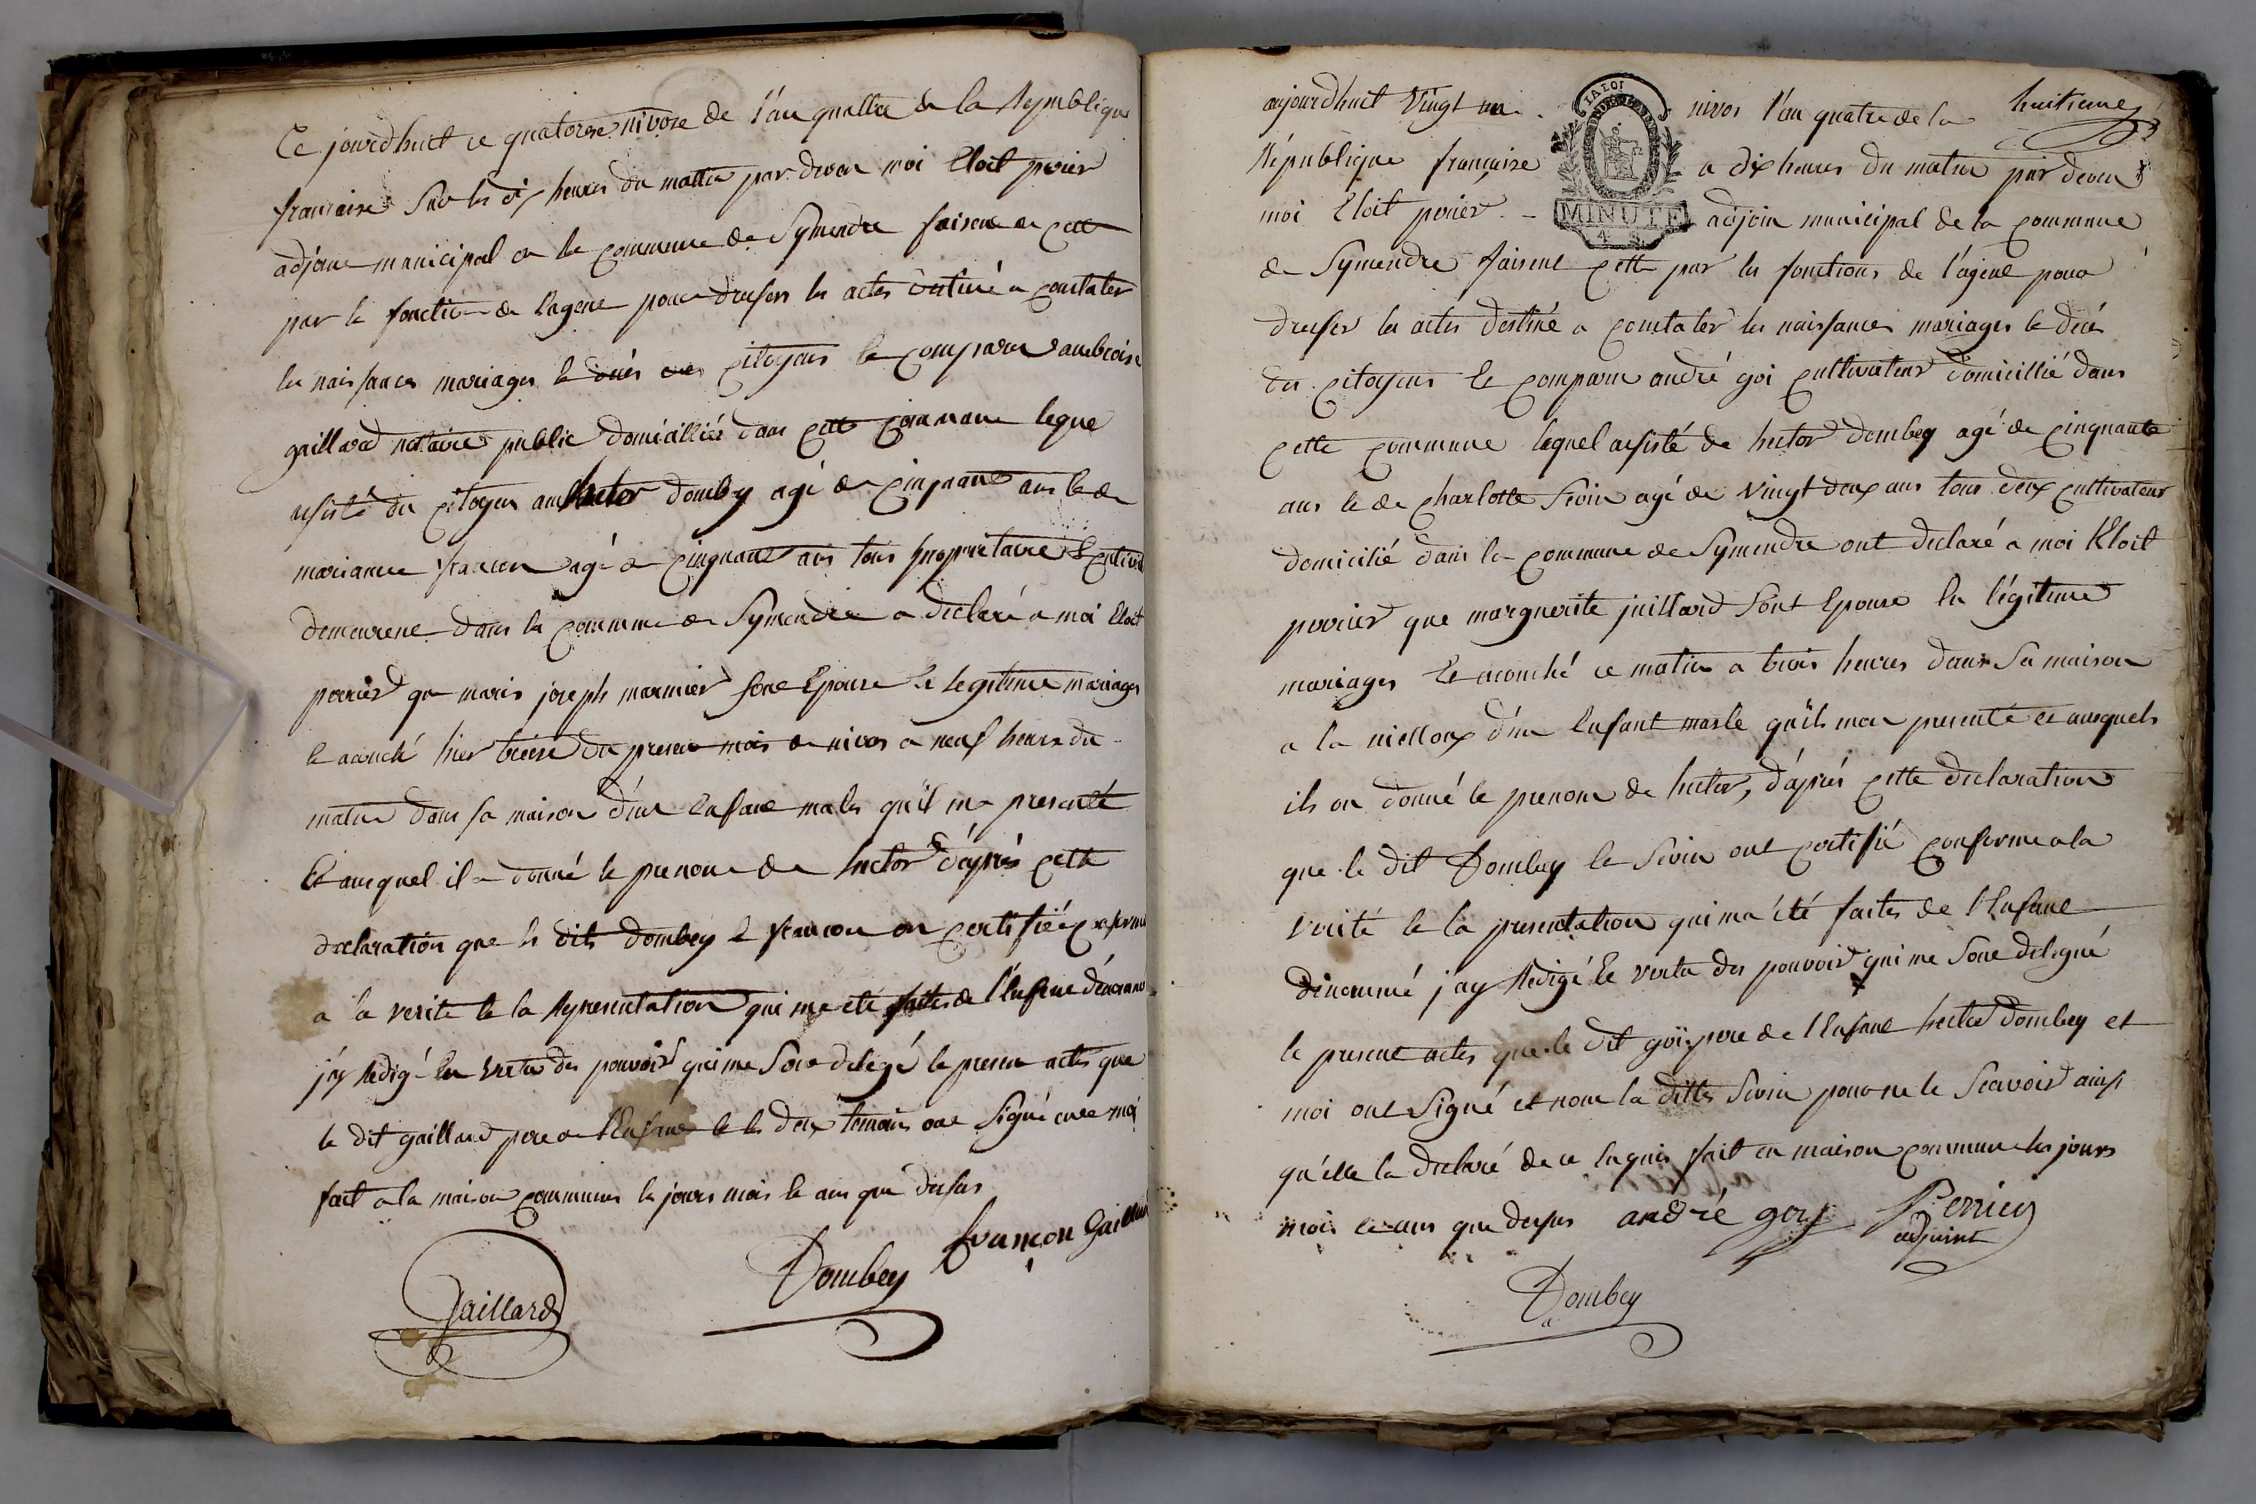 Ce jourdhuit ce quatorse nivose de l'an quattre de la Republique
francaise sur les dix heures du mattin par devan moi Eloit perier
adjoint municipal de la commune de Symendre faisent en cett
par le fonction de l'agent pour dresser les actes destiné a constater
les naissances mariages le deces des citoyens le comparu ambroise
gaillard nottaire public domicilliés dans cette commune leque
assisté du citoyen hector dombey agé de cinquante ans le de
marianne francon agé de cinquante ans tous proprietaire & cultiv
demeurent dans la commune de Symendre a declaré a moi Eloit
perrier que marie joseph marmier sont Epouse le legitime mariages
le acouché hier treise du presen mois de nivos a neuf heure du
matin dans sa maison d'un Enfant males qu'il ma presenté
Et auquel il a donné le prenom de hector d'après cette
declaration que les dits dombey & francon on certifié conforme
a la verité le la representation qui ma été faites de l'Enfant denomm
j'ay Redigé En vertu des pouvoir qui me sont delegé le presen actes que
le dit gaillard pere de l'Enfant le les deux temoins ont signé avec moi
fait a la maison communes les jours mois le ans que dessus
françon Gaillard
Dombey
Gaillard
huitieme
aujourdhuit Vingt un nivos l'an quatre de la
LA LOI
MINUTE
4 S.
République francaise a dix heures du matin par devan
moi Eloit perier adjoin municipal de la commune
de Symendre faisent cette par les fonctions de l'agent pour
dresser les actes destiné a constater les naissances mariages le deces
des citoyens le comparu andré goi cultivateur domicillié dans
cette commune lequel assisté de hector dombey agé de cinquante
ans le de charlotte Sivin agé de vingt deux ans tous deux cultivateur
domicilié dans la commune de Symendre ont declaré a moi Eloit
perrier que marguerite juillard sont Epouse En légitime
mariages le acouché ce matin a trois heures dans sa maison
a la d'un Enfant masle qu'ils mon presenté et auxquels
ils on donné le prenom de hector, d'aprés cette declaration
que le dit Dombey le Sivin ont certifié conforme a la
verité le la presentation qui ma été faites de l'Enfant
denommé j'ay Redigé En vertu des pouvoir qui me sont delegué
le present actes que le dit goi pere de l'Enfant hector Dombey et
moi ont signé et non la ditte Sivin pour ne le Scavoir ainsi
qu'elle la declaré de ce Enquis fait en maison commune les jours
mois le ans que dessus andré goy Perrier
adjoint
Dombey